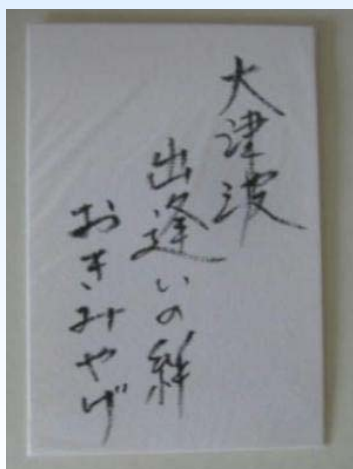 大津波
出逢いの絆
おきみやげ